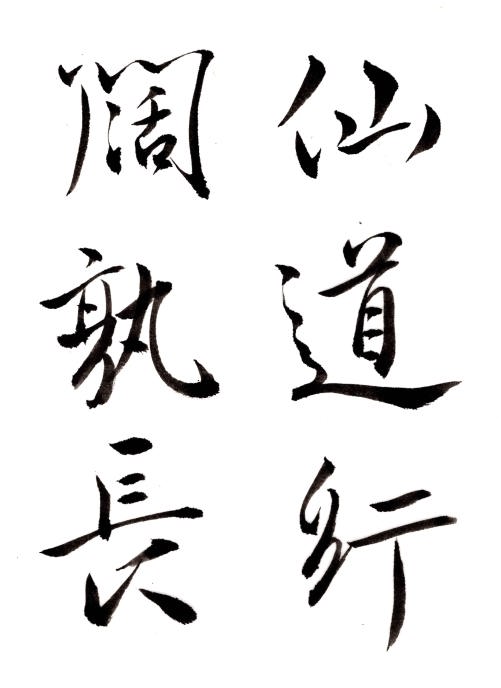 仙道行
闊孰長